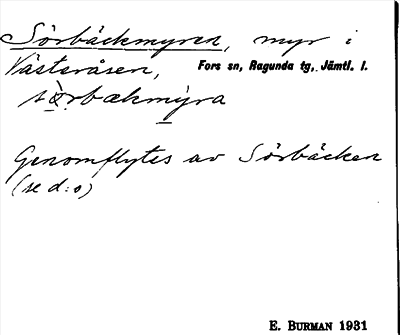 Sörbäckmyren, myr i
Västeråsen, Fors sn, Ragunda tg, Jämtl. l.
sørbækmỳra
Genomflytes av Sörbäcken
(se d:o)
E. BURMAN 1931